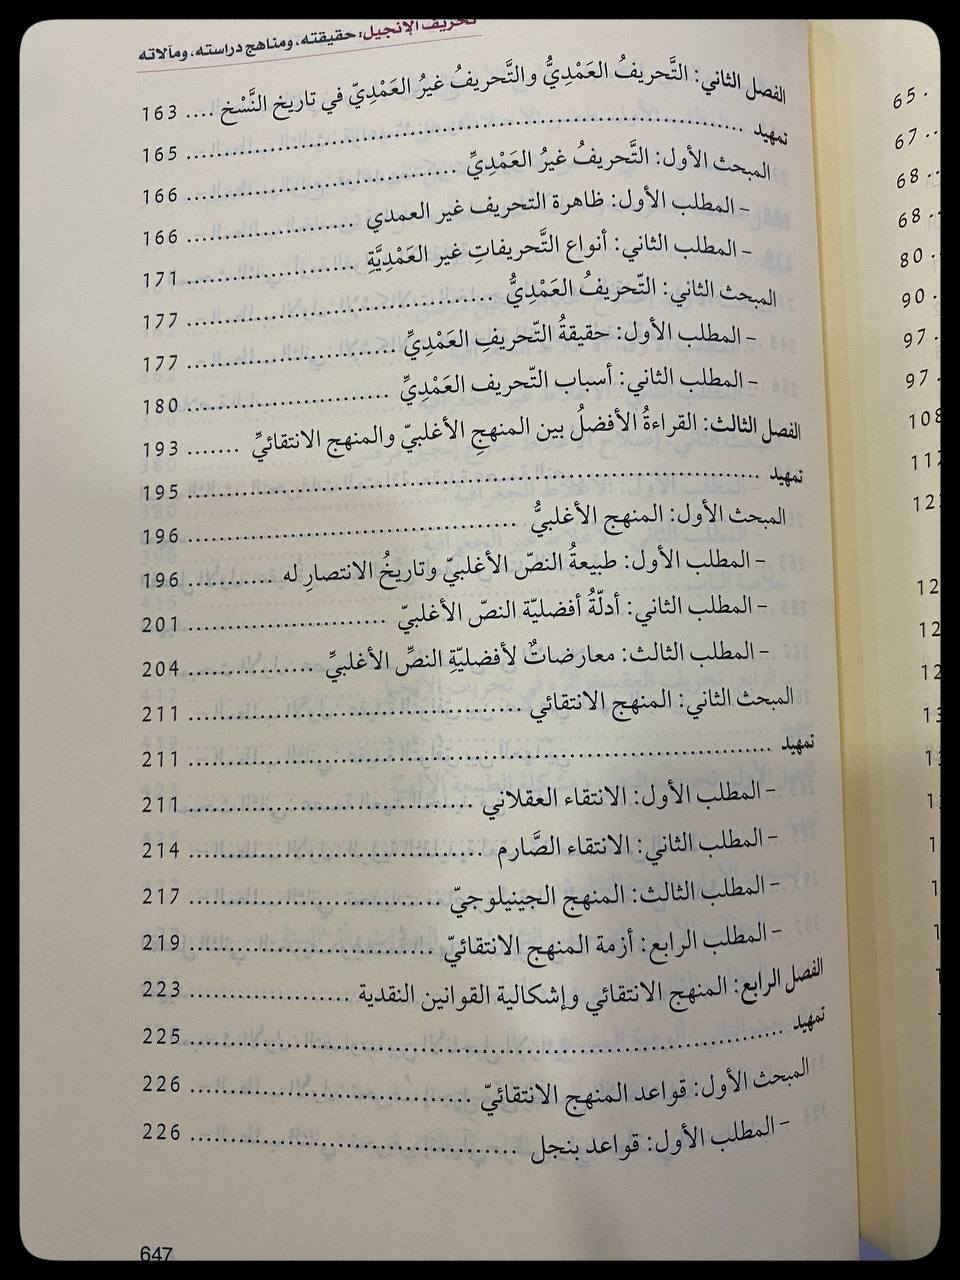 تحريف الإنجيل: حقيقته، ومناهج دراسته، ومآلاته
الفصل الثاني: التَّحريفُ العَمْدِيُّ والتَّحريفُ غيرُ العَمْدِيّ في تاريخ النَّسْخ .... 163
تمهيد ........ 165
المبحث الأول: التَّحريفُ غيرُ العَمْدِيِّ ........ 166
- المطلب الأول: ظاهرة التحريف غير العمدي ........ 166
- المطلب الثاني: أنواع التَّحريفاتِ غير العَمْدِيَّةِ ........ 171
المبحث الثاني: التّحريفُ العَمْدِيُّ ........ 177
- المطلب الأول: حقيقةُ التّحريفِ العَمْدِيِّ ........ 177
- المطلب الثاني: أسباب التّحريف العَمْدِيِّ ........ 180
الفصل الثالث: القراءةُ الأفضلُ بين المنهجِ الأغلبيّ والمنهج الانتقائيِّ ....... 193
تمهيد ........ 195
المبحث الأول: المنهج الأغلبيُّ ........ 196
- المطلب الأول: طبيعةُ النصّ الأغلبيّ وتاريخُ الانتصارِ له ........ 196
- المطلب الثاني: أدلّةُ أفضليّة النصّ الأغلبيّ ........ 201
- المطلب الثالث: معارضاتٌ لأفضليّةِ النصِّ الأغلبيِّ ........ 204
المبحث الثاني: المنهج الانتقائي ........ 211
تمهيد ........ 211
- المطلب الأول: الانتقاء العقلاني ........ 211
- المطلب الثاني: الانتقاء الصَّارم ........ 214
- المطلب الثالث: المنهج الجينيلوجيّ ........ 217
- المطلب الرابع: أزمة المنهج الانتقائيّ ........ 219
الفصل الرابع: المنهج الانتقائي وإشكالية القوانين النقدية ........ 223
تمهيد ........ 225
المبحث الأول: قواعد المنهج الانتقائيّ ........ 226
- المطلب الأول: قواعد بنجل ........ 226
647
65
67
68
68
80
90
97
97
108